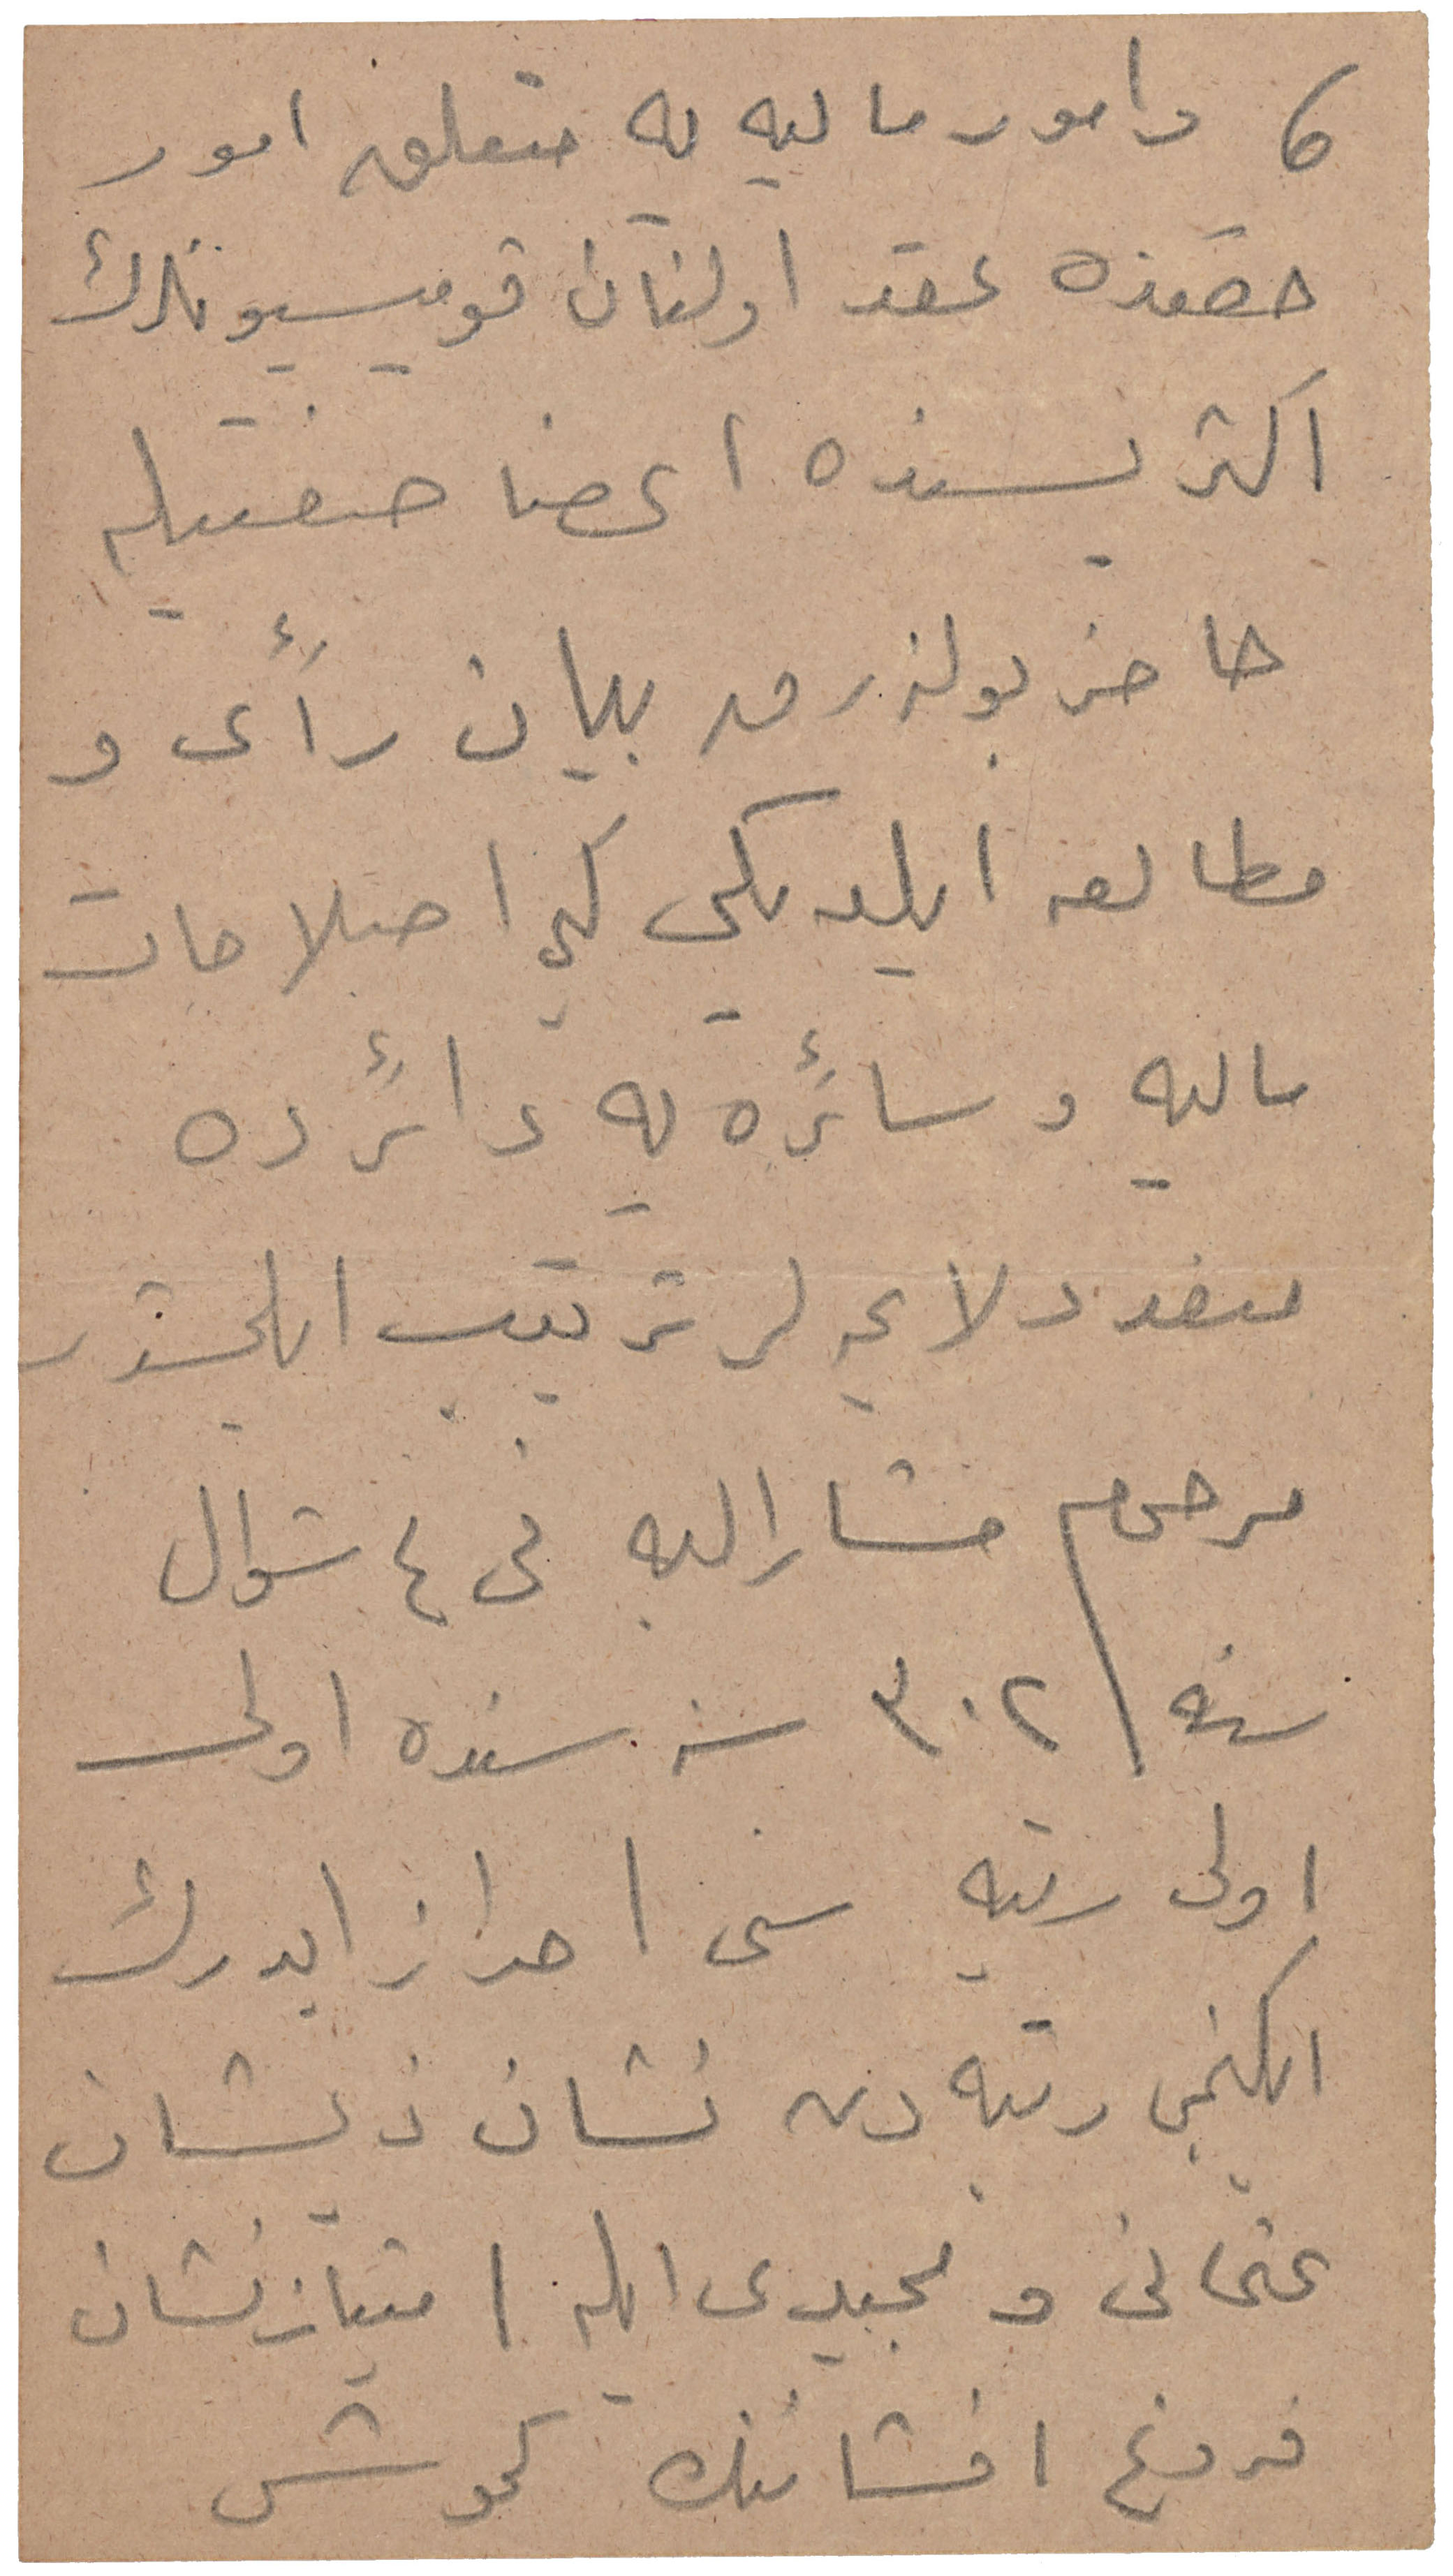 6 و امور ماليه يه متعلق امور
حقنده عقد اولنان قوميسيونلرك
اكثريسنده اعضا صفتيله
حاضر بولنه رق بيان رأی و
مطالعه ايلديكی كبی اصلاحات
ماليه و سائره يه دائر ده
متعدد لايحه لر ترتيب ايلمشدر
مرحوم مشار اليه فی ٤ شوال
سنه ٣٠٢ سنه سنده اولی
اولی رتبه سنی احراز ايدرك
ايكنجی رتبه دن نشان ذيشان
عثمانی و مجيدی ايله امتياز نشان
فروغ افشاننك كومش